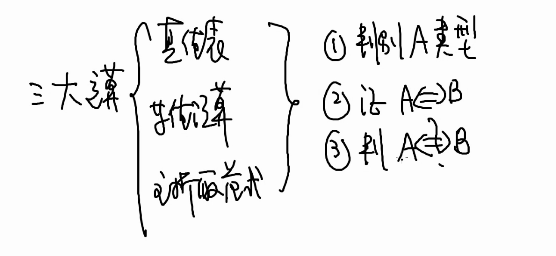 三大演算
真值表
等值演算
主析取范式
① 判别A类型
② 证 A⇔B
③ 判 A⇔B
?